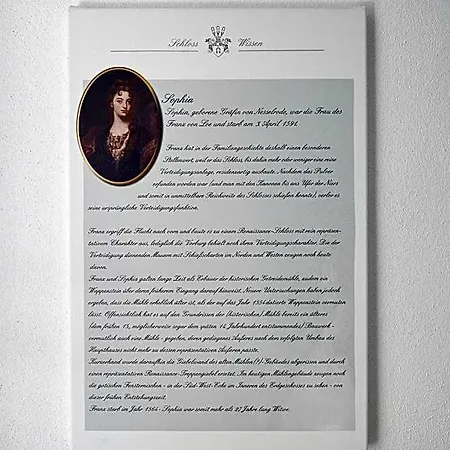 Schloss Wissen
Sophia
Sophia, geborene Gräfin von Nesselrode, war die Frau des
Franz von Loe und starb am 3. April 1591.
Franz hat in der Familiengeschichte deshalb einen besonderen
Stellenwert, weil er das Schloss, bis dahin mehr oder weniger eine reine
Verteidigungsanlage, residenzartig ausbaute. Nachdem das Pulver
erfunden worden war (und man mit den Kanonen bis ans Ufer der Niers
und somit in unmittelbare Reichweite des Schlosses schießen konnte), verlor es
seine ursprüngliche Verteidigungsfunktion.
Franz ergriff die Flucht nach vorn und baute es zu einem Renaissance-Schloss mit rein repräsen-
tativem Charakter aus, lediglich die Vorburg behielt noch ihren Verteidigungscharakter. Die der
Verteidigung dienenden Mauern mit Schießscharten im Norden und Westen zeugen noch heute
davon.
Franz und Sophia galten lange Zeit als Erbauer der historischen Getreidemühle, zudem ein
Wappenstein über deren früheren Eingang darauf hinweist. Neuere Untersuchungen haben jedoch
ergeben, dass die Mühle erheblich älter ist, als der auf das Jahr 1554 datierte Wappenstein vermuten
lässt. Offensichtlich hat es auf den Grundrissen der (historischen) Mühle bereits ein älteres
(dem frühen 15., möglicherweise sogar dem späten 14. Jahrhundert entstammendes) Bauwerk -
vermutlich auch eine Mühle - gegeben, deren gediegenes Äußeres nach dem erfolgten Umbau des
Haupthauses nicht mehr zu dessen repräsentativen Äußeren passte.
Kurzerhand wurde daraufhin die Giebelwand des alten Mühlen(?)-Gebäudes abgerissen und durch
einen repräsentativen Renaissance-Treppengiebel ersetzt. Im heutigen Mühlengebäude zeugen noch
die gotischen Fensternischen - in der Süd-West-Ecke im Inneren des Erdgeschosses zu sehen - von
dieser frühen Entstehungszeit.
Franz starb im Jahr 1564 - Sophia war somit mehr als 27 Jahre lang Witwe.